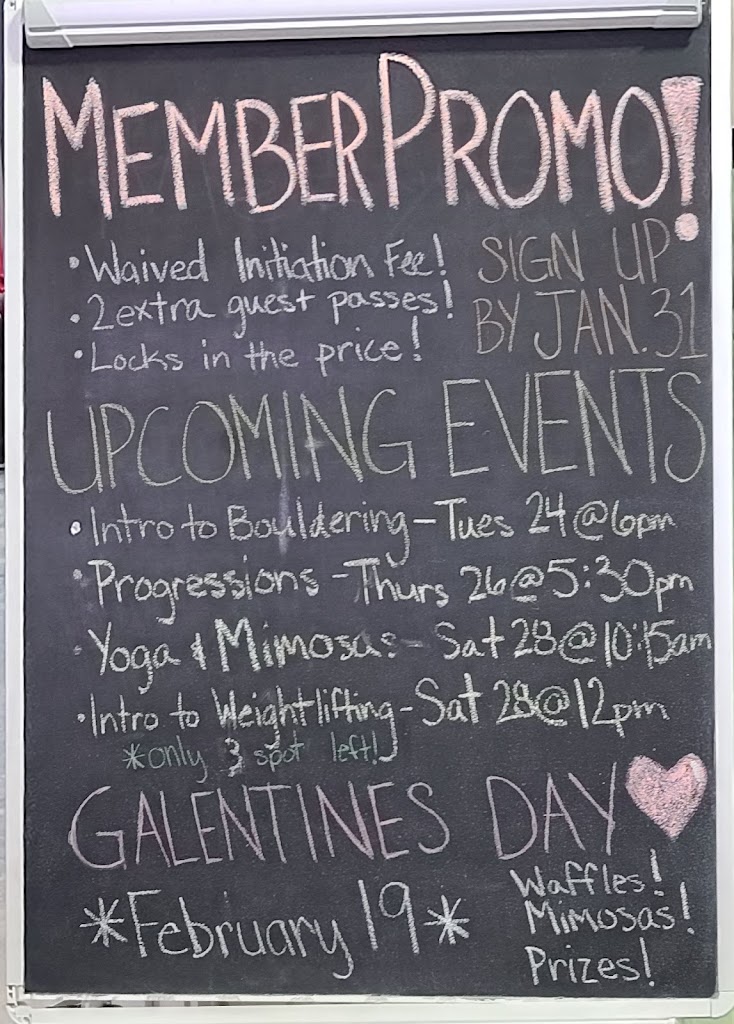 MEMBER PROMO!
• Waived Initiation Fee!
• 2 extra guest passes!
• Locks in the price!
SIGN UP
BY JAN. 31
UPCOMING EVENTS
• Intro to Bouldering - Tues 24 @ 6pm
• Progressions - Thurs 26 @ 5:30pm
• Yoga & Mimosas - Sat 28 @ 10:15am
• Intro to Weightlifting - Sat 28 @ 12pm
*only 3 spot left!
GALENTINES DAY
*February 19*
Waffles!
Mimosas!
Prizes!